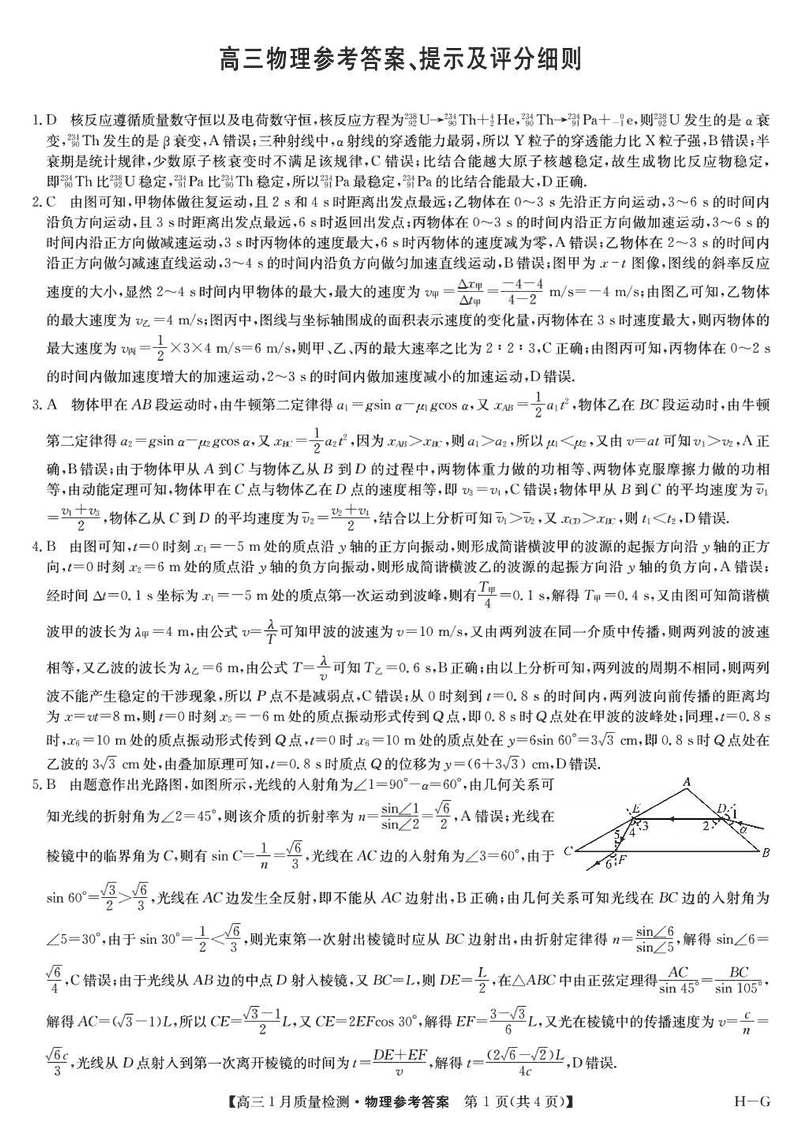 高三物理参考答案、提示及评分细则
1. D 核反应遵循质量数守恒以及电荷数守恒,核反应方程为²³⁸₉₂U→²³⁴₉₀Th+⁴₂He,²³⁴₉₀Th→²³⁴₉₁Pa+⁰₋₁e,则²³⁸₉₂U 发生的是 α 衰
变,²³⁴₉₀Th 发生的是 β 衰变,A 错误;三种射线中,α 射线的穿透能力最弱,所以 Y 粒子的穿透能力比 X 粒子强,B 错误;半
衰期是统计规律,少数原子核衰变时不满足该规律,C 错误;比结合能越大原子核越稳定,故生成物比反应物稳定,
即²³⁴₉₀Th 比²³⁸₉₂U 稳定,²³⁴₉₁Pa 比²³⁴₉₀Th 稳定,所以²³⁴₉₁Pa 最稳定,²³⁴₉₁Pa 的比结合能最大,D 正确.
2. C 由图可知,甲物体做往复运动,且 2 s 和 4 s 时距离出发点最远;乙物体在 0～3 s 先沿正方向运动,3～6 s 的时间内
沿负方向运动,且 3 s 时距离出发点最远,6 s 时返回出发点;丙物体在 0～3 s 的时间内沿正方向做加速运动,3～6 s 的
时间内沿正方向做减速运动,3 s 时丙物体的速度最大,6 s 时丙物体的速度减为零,A 错误;乙物体在 2～3 s 的时间内
沿正方向做匀减速直线运动,3～4 s 的时间内沿负方向做匀加速直线运动,B 错误;图甲为 x-t 图像,图线的斜率反应
速度的大小,显然 2～4 s 时间内甲物体的最大,最大的速度为 v甲=Δx甲/Δt甲=(-4-4)/(4-2) m/s=-4 m/s;由图乙可知,乙物体
的最大速度为 v乙=4 m/s;图丙中,图线与坐标轴围成的面积表示速度的变化量,丙物体在 3 s 时速度最大,则丙物体的
最大速度为 v丙=1/2×3×4 m/s=6 m/s,则甲、乙、丙的最大速率之比为 2∶2∶3,C 正确;由图丙可知,丙物体在 0～2 s
的时间内做加速度增大的加速运动,2～3 s 的时间内做加速度减小的加速运动,D 错误.
3. A 物体甲在 AB 段运动时,由牛顿第二定律得 a₁=gsin α-μ₁gcos α,又 x_AB=1/2 a₁t²,物体乙在 BC 段运动时,由牛顿
第二定律得 a₂=gsin α-μ₂gcos α,又 x_BC=1/2 a₂t²,因为 x_AB>x_BC,则 a₁>a₂,所以 μ₁<μ₂,又由 v=at 可知 v₁>v₂,A 正
确,B 错误;由于物体甲从 A 到 C 与物体乙从 B 到 D 的过程中,两物体重力做的功相等、两物体克服摩擦力做的功相
等,由动能定理可知,物体甲在 C 点与物体乙在 D 点的速度相等,即 v₃=v₄,C 错误;物体甲从 B 到 C 的平均速度为 v̄₁
=(v₁+v₃)/2,物体乙从 C 到 D 的平均速度为 v̄₂=(v₂+v₄)/2,结合以上分析可知 v̄₁>v̄₂,又 x_CD>x_BC,则 t₁<t₂,D 错误.
4. B 由图可知,t=0 时刻 x₁=-5 m 处的质点沿 y 轴的正方向振动,则形成简谐横波甲的波源的起振方向沿 y 轴的正方
向,t=0 时刻 x₂=6 m 处的质点沿 y 轴的负方向振动,则形成简谐横波乙的波源的起振方向沿 y 轴的负方向,A 错误;
经时间 Δt=0.1 s 坐标为 x₁=-5 m 处的质点第一次运动到波峰,则有T甲/4=0.1 s,解得 T甲=0.4 s,又由图可知简谐横
波甲的波长为 λ甲=4 m,由公式 v=λ/T可知甲波的波速为 v=10 m/s,又由两列波在同一介质中传播,则两列波的波速
相等,又乙波的波长为 λ乙=6 m,由公式 T=λ/v可知 T乙=0.6 s,B 正确;由以上分析可知,两列波的周期不相同,则两列
波不能产生稳定的干涉现象,所以 P 点不是减弱点,C 错误;从 0 时刻到 t=0.8 s 的时间内,两列波向前传播的距离均
为 x=vt=8 m,则 t=0 时刻 x₅=-6 m 处的质点振动形式传到 Q 点,即 0.8 s 时 Q 点处在甲波的波峰处;同理,t=0.8 s
时,x₆=10 m 处的质点振动形式传到 Q 点,t=0 时 x₆=10 m 处的质点处在 y=6sin 60°=3√3 cm,即 0.8 s 时 Q 点处在
乙波的 3√3 cm 处,由叠加原理可知,t=0.8 s 时质点 Q 的位移为 y=(6+3√3) cm,D 错误.
5. B 由题意作出光路图,如图所示,光线的入射角为∠1=90°-α=60°,由几何关系可
知光线的折射角为∠2=45°,则该介质的折射率为 n=sin∠1/sin∠2=√6/2,A 错误;光线在
棱镜中的临界角为 C,则有 sin C=1/n=√6/3,光线在 AC 边的入射角为∠3=60°,由于
A
E
D
1
5
4
3
2
α
C
6
F
B
sin 60°=√3/2>√6/3,光线在 AC 边发生全反射,即不能从 AC 边射出,B 正确;由几何关系可知光线在 BC 边的入射角为
∠5=30°,由于 sin 30°=1/2<√6/3,则光束第一次射出棱镜时应从 BC 边射出,由折射定律得 n=sin∠6/sin∠5,解得 sin∠6=
√6/4,C 错误;由于光线从 AB 边的中点 D 射入棱镜,又 BC=L,则 DE=L/2,在△ABC 中由正弦定理得AC/sin 45°=BC/sin 105°,
解得 AC=(√3-1)L,所以 CE=(√3-1)/2 L,又 CE=2EFcos 30°,解得 EF=(3-√3)/6 L,又光在棱镜中的传播速度为 v=c/n=
√6c/3,光线从 D 点射入到第一次离开棱镜的时间为 t=(DE+EF)/v,解得 t=(2√6-√2)L/4c,D 错误.
【高三 1 月质量检测·物理参考答案 第 1 页(共 4 页)】 H-G